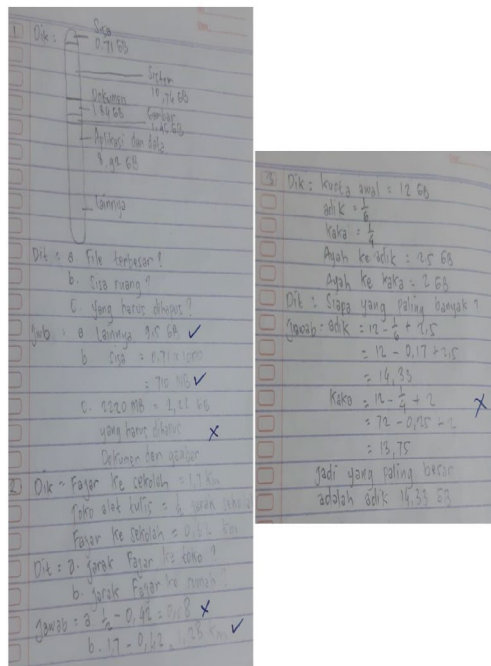 1 Dik :
Sisa
0.71 GB
Sistem
10,76 GB
Dokumen
1.84 GB
Gambar
1,45 GB
Aplikasi dan data
8.92 GB
Lainnya
Dit : a File terbesar ?
b. Sisa ruang ?
c. Yang harus dihapus ?
Jwb : a Lainnya GB ✓
b Sisa = 0.71 x 1000
= 710 MB ✓
c. 2220 MB = 2,22 GB
yang harus dihapus ✗
Dokumen dan gambar
2 Dik = Fajar ke sekolah = 1,7 Km
Toko alat tulis = 1/2 jarak sekolah
Fajar ke sekolah = Km
Dit = a. jarak Fajar ke toko ?
b. jarak Fajar ke rumah ?
Jawab = a 1/2 - 0,42 = ✗
b. 1.7 - 0,42 = 1,28 Km ✓
3 Dik : kuota awal = 12 GB
adik = 1/6
kaka = 1/4
Ayah ke adik = 2.5 GB
Ayah ke kaka = 2 GB
Dit : Siapa yang paling banyak ?
Jawab = adik = 12 - 1/6 + 2,5
= 12 - 0,17 + 2,5
= 14,33
Kaka = 12 - 1/4 + 2 ✗
= 12 - 0,25 + 2
= 13,75
Jadi yang paling besar
adalah adik 14.33 GB